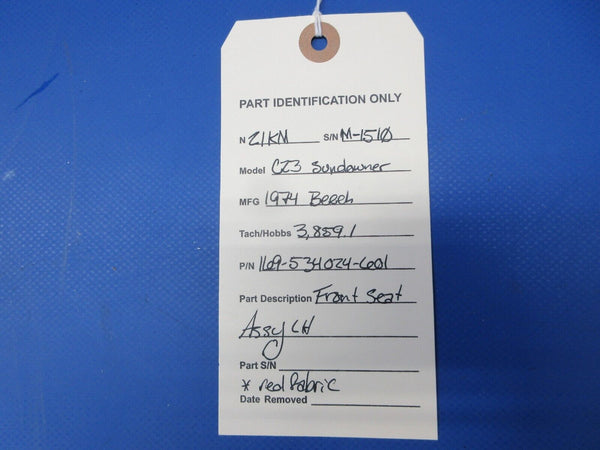 PART IDENTIFICATION ONLY
N 21KM S/N M-1510
Model C23 Sundowner
MFG 1974 Beech
Tach/Hobbs 3,859.1
P/N 169-534024-601
Part Description Front Seat
Assy LH
Part S/N
* red fabric
Date Removed